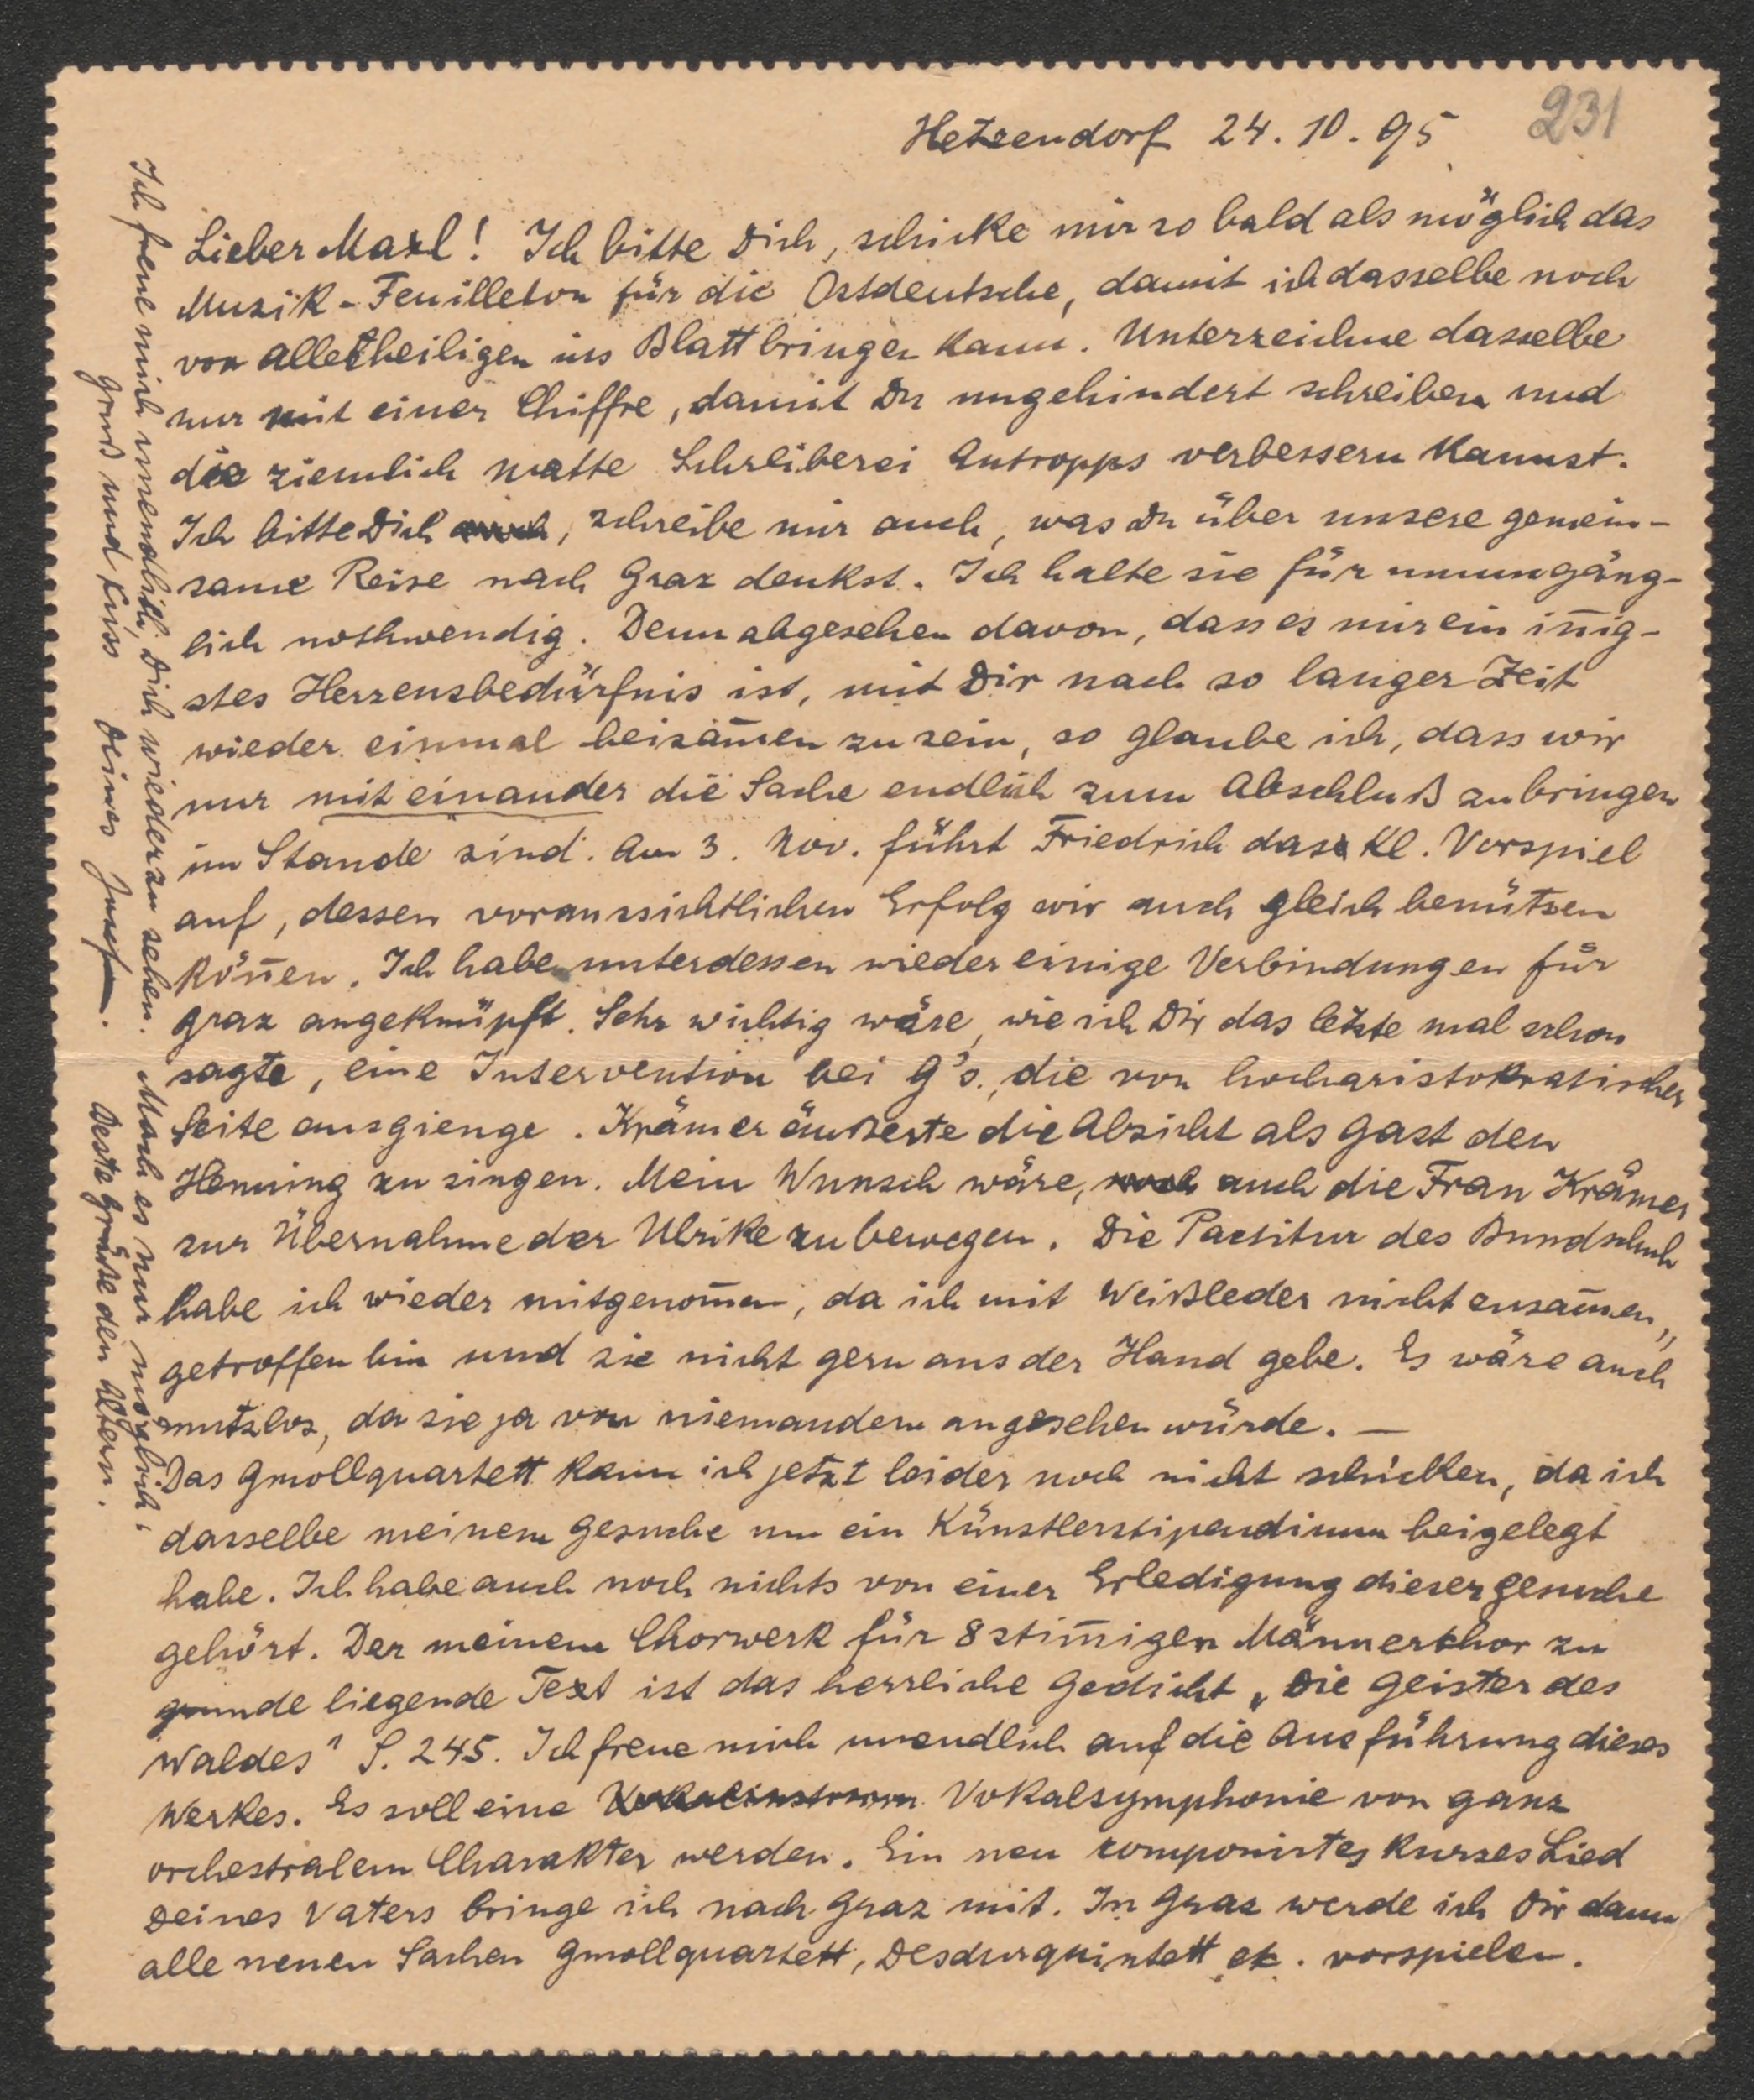 231
Hetzendorf 24. 10. 95
Lieber Maxl! Ich bitte Dich, schicke mir so bald als möglich das
Musik-Feuilleton für die Ostdeutsche, damit ich dasselbe noch
vor Allerheiligen ins Blatt bringen kann. Unterzeichne dasselbe
nur mit einer Chiffre, damit Du ungehindert schreiben und
die ziemlich matte Schreiberei Antropps verbessern kannst.
Ich bitte Dich auch, schreibe mir auch, was Du über unsere gemein-
same Reise nach Graz denkst. Ich halte sie für unumgäng-
lich nothwendig. Denn abgesehen davon, dass es mir ein in̄ig-
stes Herzensbedürfnis ist, mit Dir nach so langer Zeit
wieder einmal beisam̄en zu sein, so glaube ich, dass wir
nur mit einander die Sache endlich zum Abschluß zu bringen
im Stande sind. Am 3. Nov. führt Friedrich das Kl. Vorspiel
auf, dessen voraussichtlichen Erfolg wir auch gleich benützen
kön̄en. Ich habe unterdessen wieder einige Verbindungen für
Graz angeknüpft. Sehr wichtig wäre, wie ich Dir das letzte mal schon
sagte, eine Intervention bei G's., die von hocharistokratischer
Seite ausgienge. Krämer äußerte die Absicht als Gast den
Henning zu singen. Mein Wunsch wäre, auch die Frau Krämer
zur Übernahme der Ulrike zu bewegen. Die Partitur des Bundschuh
habe ich wieder mitgenom̄en, da ich mit Weißleder nicht zusam̄en„
getroffen bin und sie nicht gern aus der Hand gebe. Es wäre auch
nutzlos, da sie ja von niemandem angesehen würde. —
Das Gmollquartett kann ich jetzt leider noch nicht schicken, da ich
dasselbe meinem Gesuche um ein Künstlerstipendium beigelegt
habe. Ich habe auch noch nichts von einer Erledigung dieser Gesuche
gehört. Der meinem Chorwerk für 8 stim̄igen Männerchor zu
grunde liegende Text ist das herrliche Gedicht „Die Geister des
Waldes" S. 245. Ich freue mich unendlich auf die Ausführung dieses
Werkes. Es soll eine Vokalsymphonie von ganz
orchestralem Charakter werden. Ein neu componirtes kurzes Lied
Deines Vaters bringe ich nach Graz mit. In Graz werde ich Dir dann
alle neuen Sachen Gmollquartett, Desdurquintett etc. vorspielen.
Ich freue mich unendlich, Dich wiederzusehen. Mach es nur möglich!
Gruß und Kuss Deines Josef.
Beste Grüße den Altern.